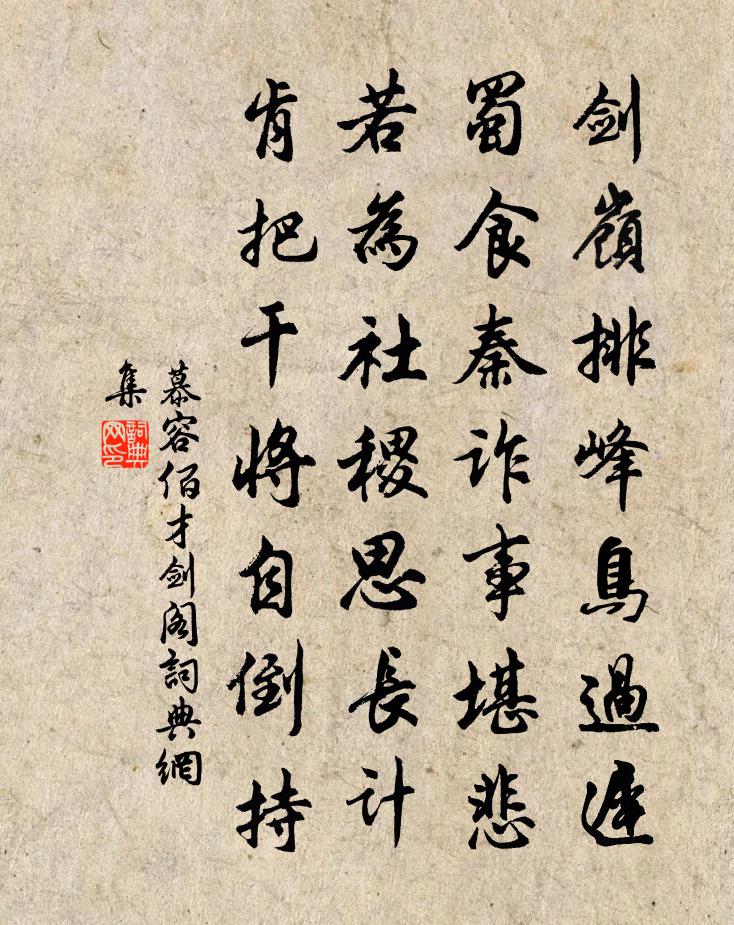 剑嶺排峰鳥過遲
蜀食秦诈事堪悲
若為社稷思長计
肯把干將自倒持
慕容佰才剑阁詞典網
集
詞典
网印